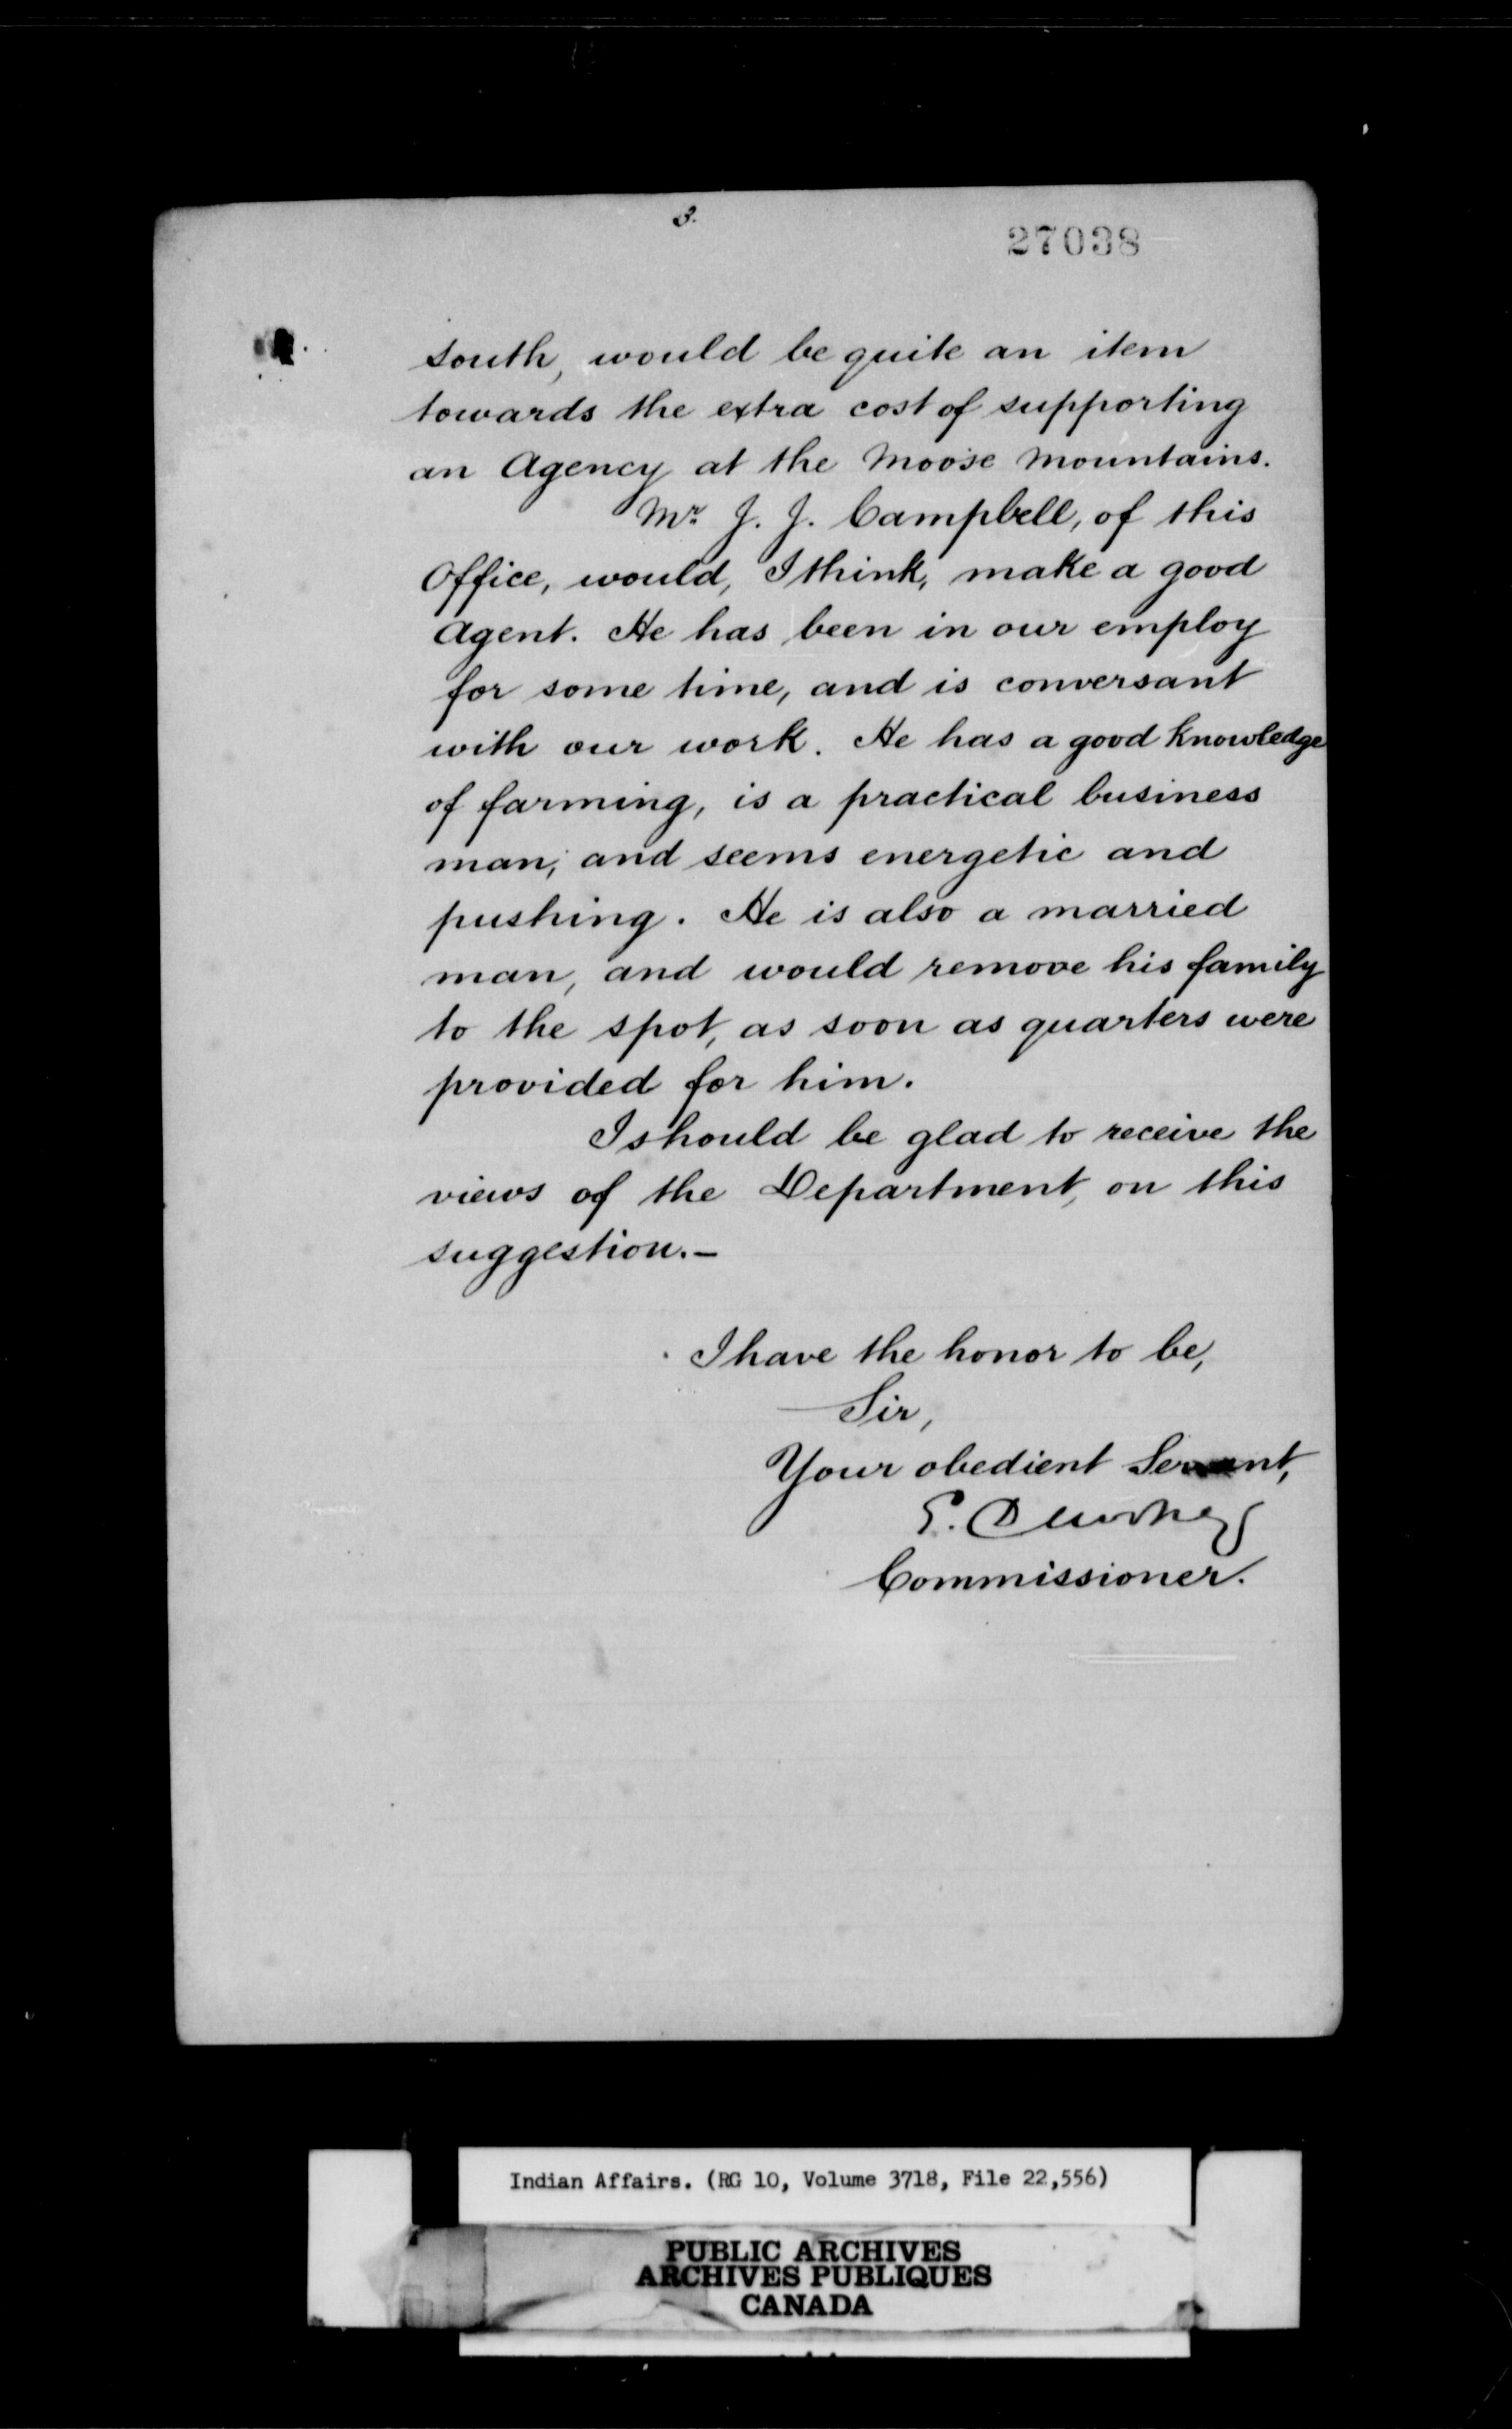 3.
27038
south, would be quite an item
towards the extra cost of supporting
an Agency at the Moose Mountains.
Mr. J. J. Campbell, of this
Office, would, I think, make a good
Agent. He has been in our employ
for some time, and is conversant
with our work. He has a good knowledge
of farming, is a practical business
man, and seems energetic and
pushing. He is also a married
man, and would remove his family
to the spot, as soon as quarters were
provided for him.
I should be glad to receive the
views of the Department, on this
suggestion.—
I have the honor to be,
Sir,
Your obedient Servant,
E. Dewdney
Commissioner.
Indian Affairs. (RG 10, Volume 3718, File 22,556)
PUBLIC ARCHIVES
ARCHIVES PUBLIQUES
CANADA